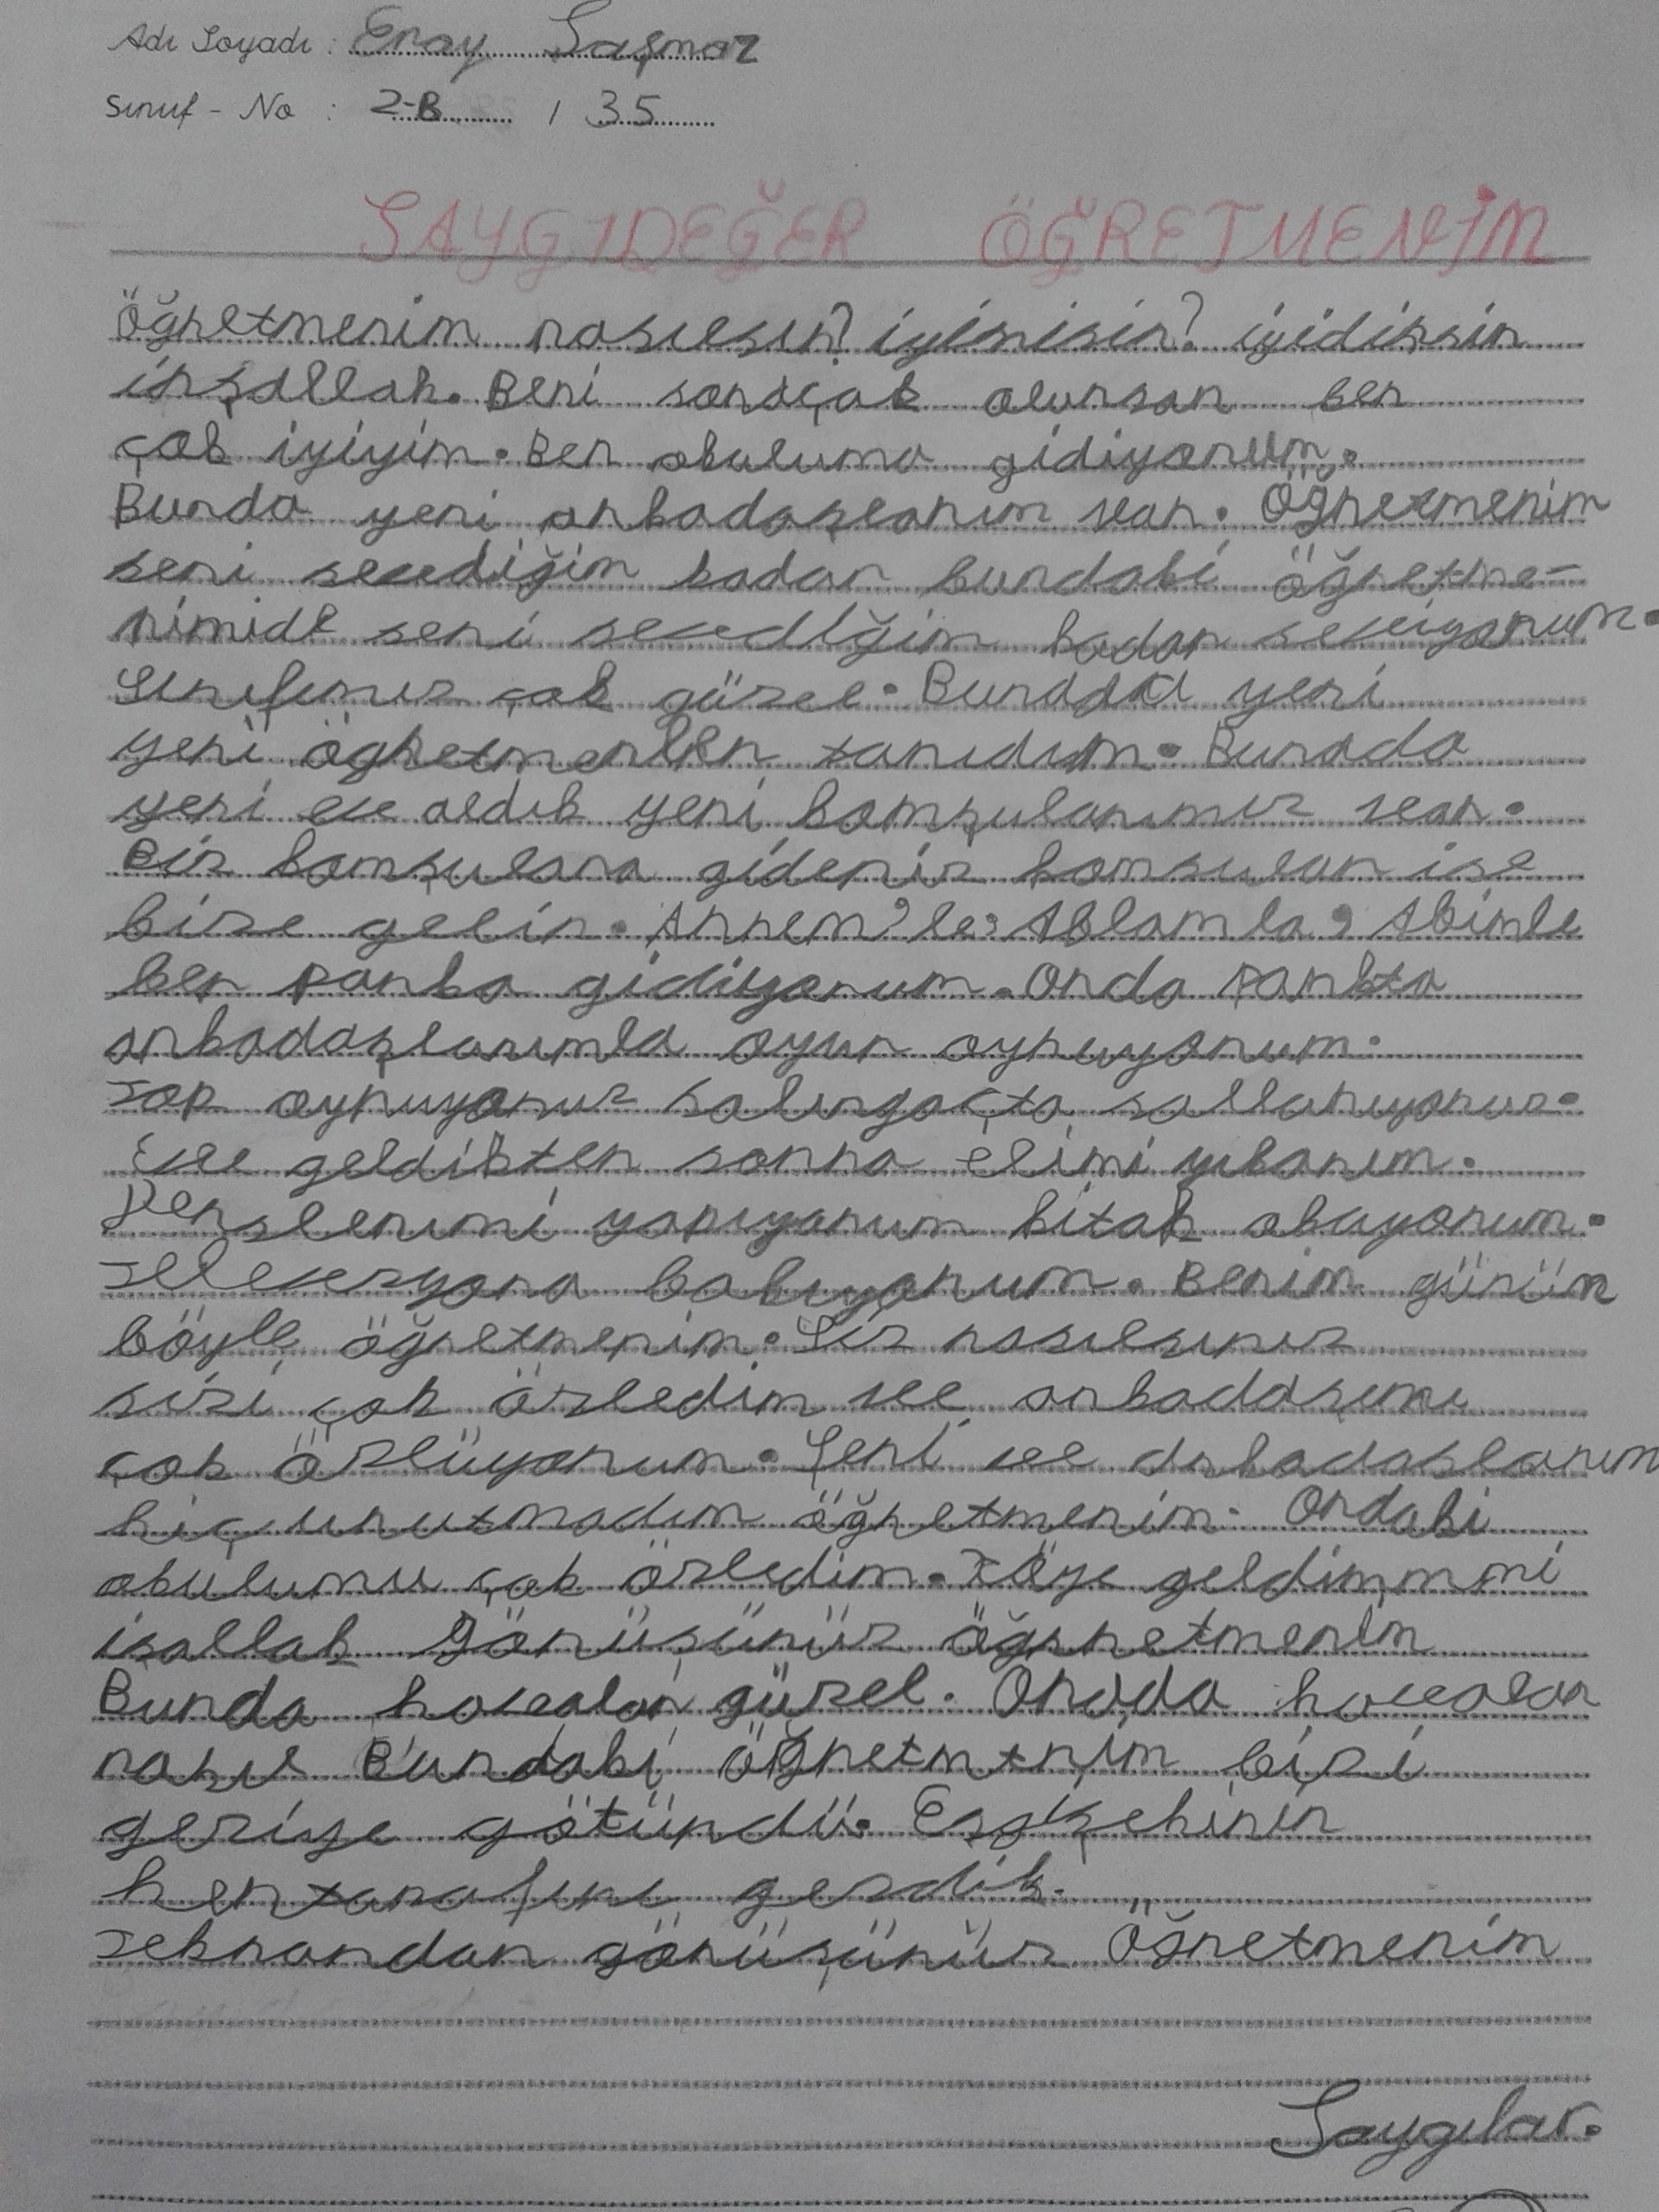 Adı Soyadı : Eray Saşmaz
Sınıf - No : 2-B / 35
SAYGIDEĞER ÖĞRETMENİM
Öğretmenim nasılsın? iyimisin? iyidirsin
inşallah. Beni soracak olursan ben
çok iyiyim. Ben okuluma gidiyorum.
Burda yeni arkadaşlarım var. Öğretmenim
seni sevdiğim kadar burdaki öğretme-
nimide seni sevdiğim kadar seviyorum.
Sınıfımız çok güzel. Burada yeni
yeni öğretmenler tanıdım. Burada
yeni ev aldık yeni komşularımız var.
Biz komşulara gideriz komşular ise
bize gelir. Annem'le, Ablamla, Abimle
ben parka gidiyorum. Orda parkta
arkadaşlarımla oyun oynuyorum.
Top oynuyoruz salıngaçta sallanıyoruz.
Eve geldikten sonra elimi yıkarım.
Derslerımi yapıyorum kitap okuyorum.
Televzyona bakıyorum. Benim günüm
böyle öğretmenim. Siz nasılsınız
sizi çok özledim ve arkadaşımı
çok özlüyorum. Seni ve arkadaşlarım
hiç unutmadım öğretmenim. Ordaki
okulumu çok özledim. Köye geldimmi
isallah görüşürüz öğrnetmenim
Burda havalar güzel. Orada havalar
nasıl Burdaki öğretmtnim bizi
geziye götürdü. Esgişehirin
her tarafını gezdik.
Tekrardan görüşürüz Öğretmenim
Saygılar.